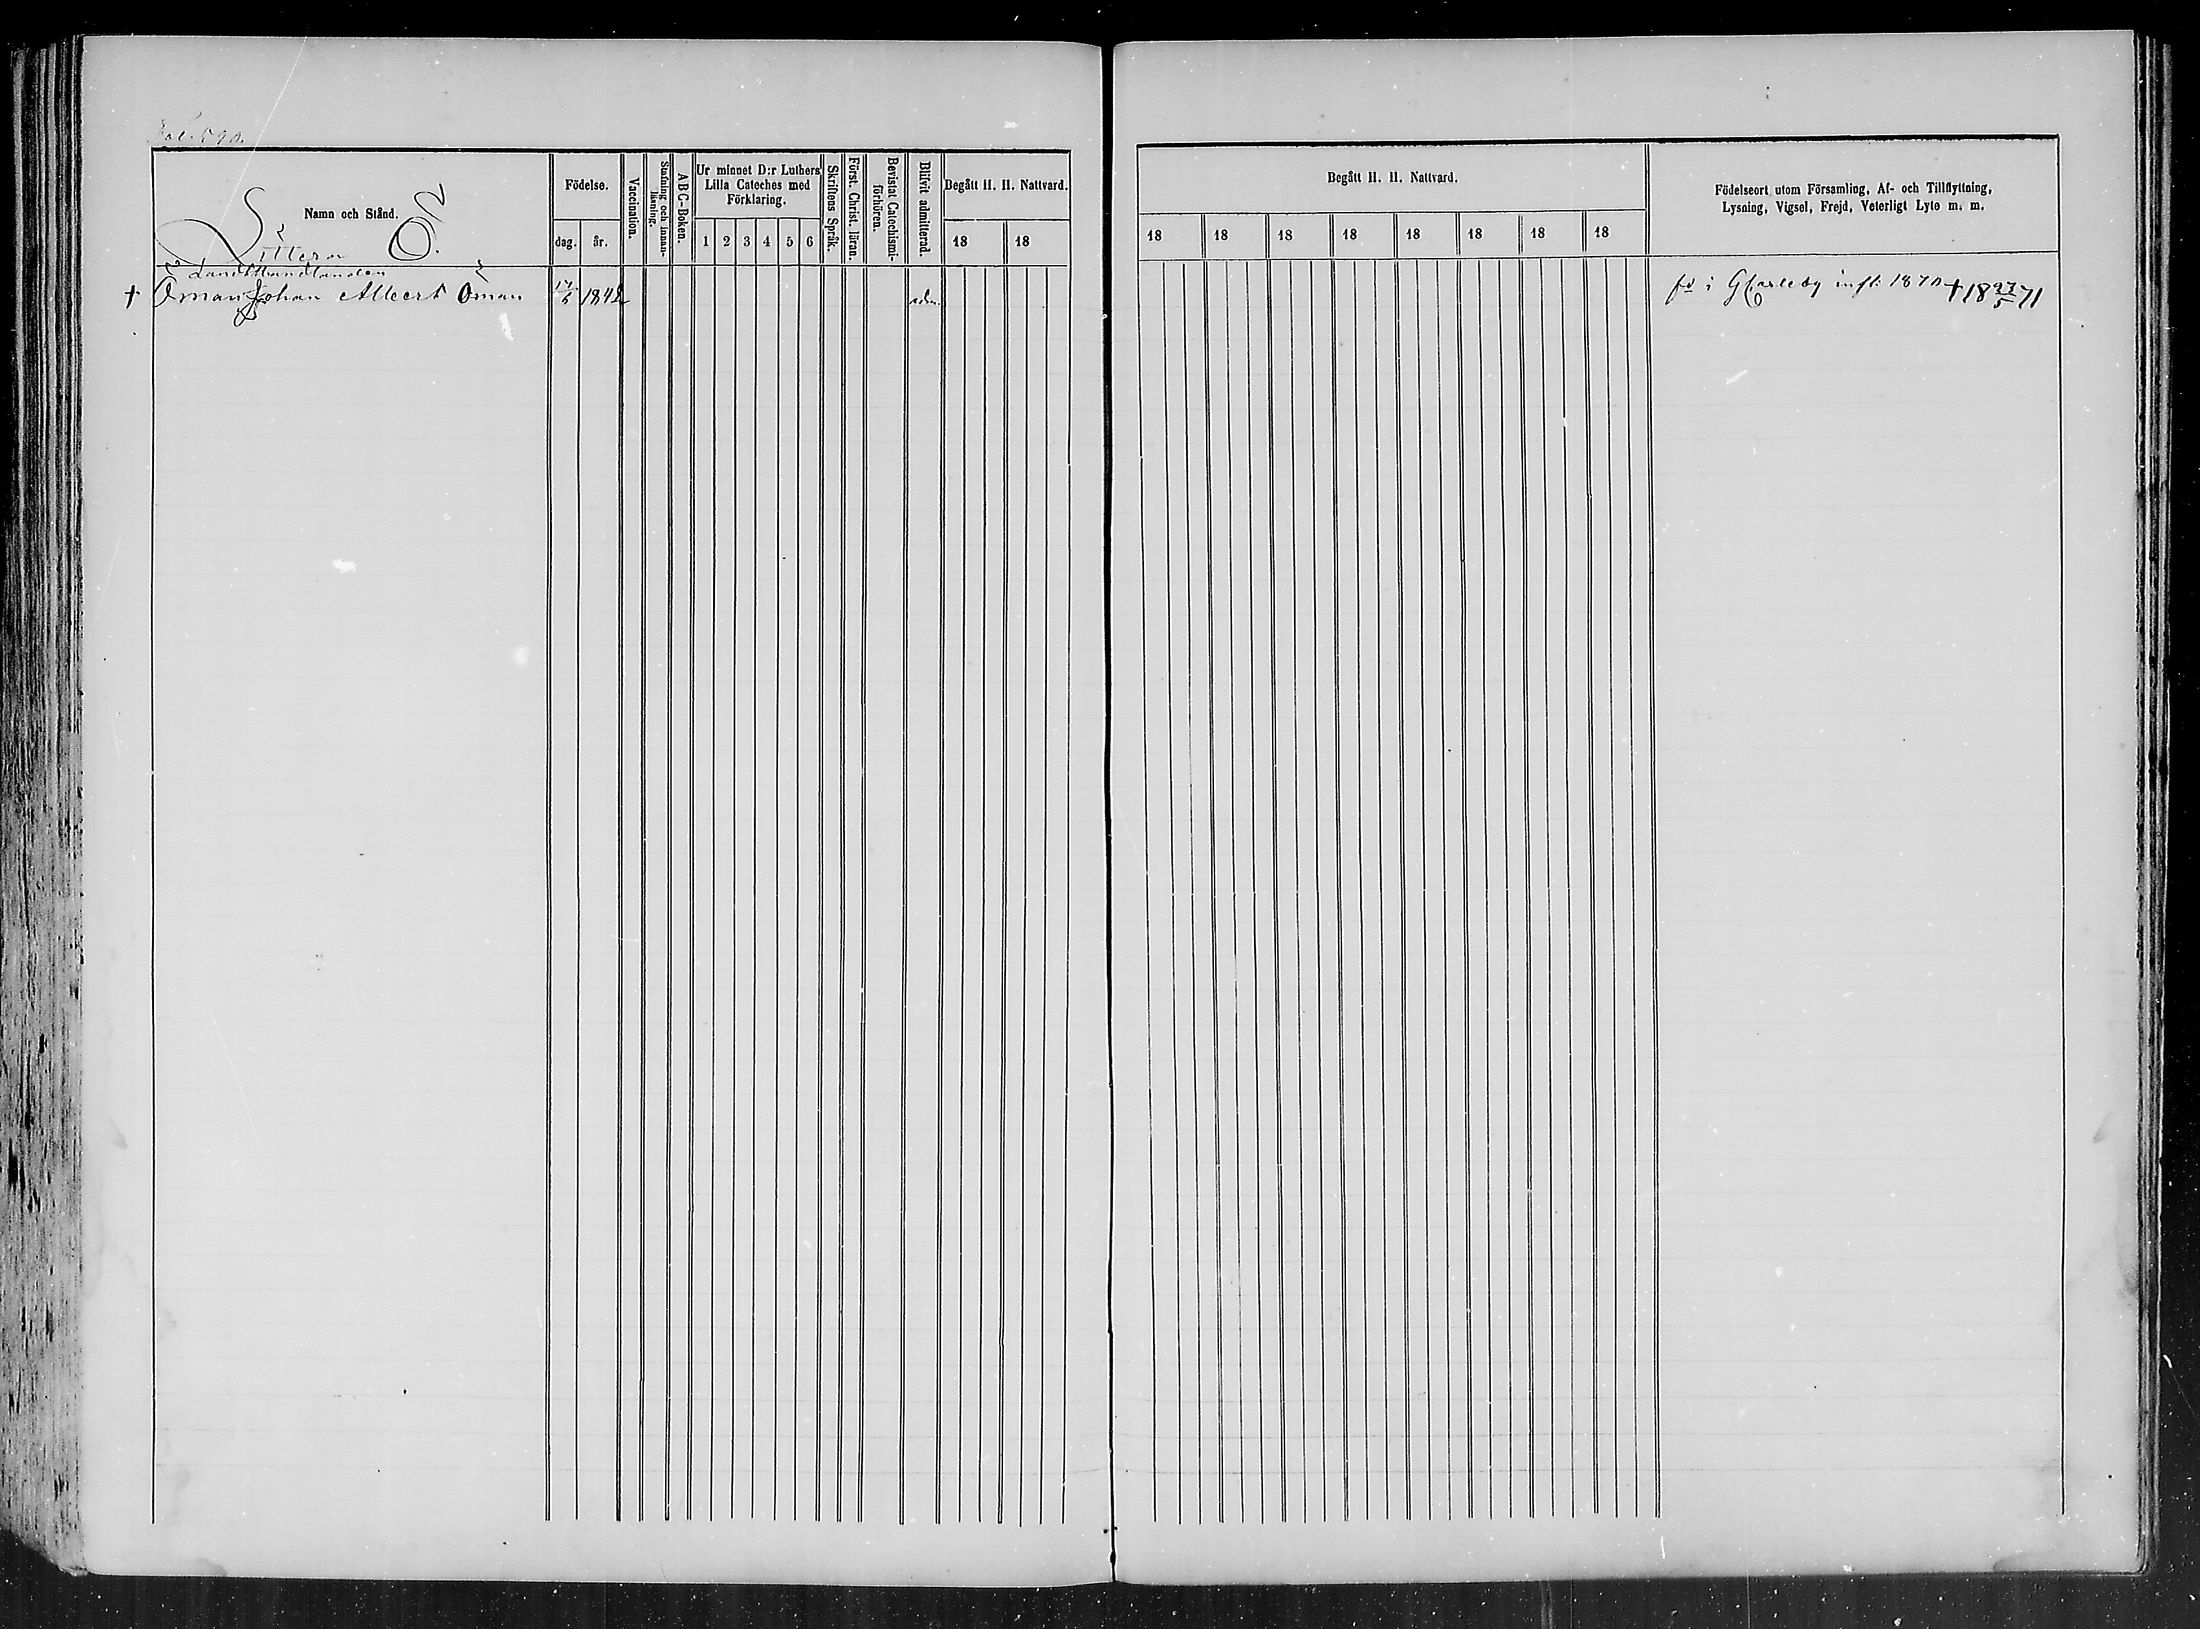 Fol. 590.
Namn och Stånd.
Littera Ö.
Födelse.
dag. år.
Vaccination.
Stafning och innanläsning.
ABC-Boken.
Ur minnet D:r Luthers
Lilla Cateches med
Förklaring.
1 2 3 4 5 6
Skriftens Språk.
Först. Christ. läran.
Bevistat Catechismiförhören.
Blifvit admitterad.
Begått H. H. Nattvard.
18 18
Landthandlanden
† Öman Johan Albert Öman 17/6 1842 adm.
Begått H. H. Nattvard.
18 18 18 18 18 18 18 18
Födelseort utom Församling, Af- och Tillflyttning,
Lysning, Vigsel, Frejd, Veterligt Lyte m. m.
fd i GCarleby infl: 1870 † 18 27/5 71